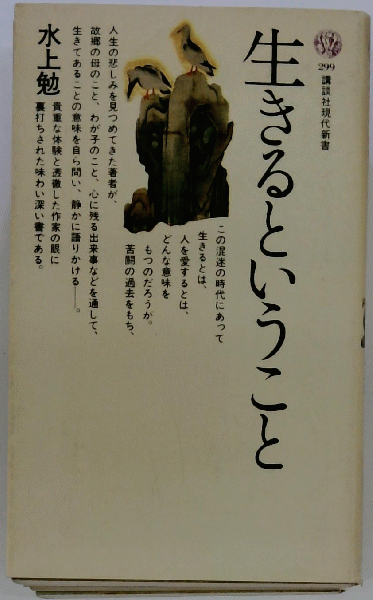 299
講談社現代新書
生きるということ
この混迷の時代にあって
生きるとは、
人を愛するとは、
どんな意味を
もつのだろうか。
苦闘の過去をもち、
人生の悲しみを見つめてきた著者が、
故郷の母のこと、わが子のこと、心に残る出来事などを通して、
生きてあることの意味を自ら問い、静かに語りかける——。
貴重な体験と透徹した作家の眼に
裏打ちされた味わい深い書である。
水上勉